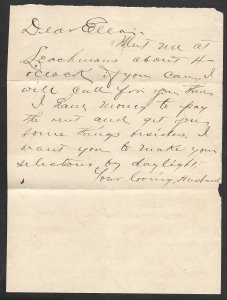 Dear Ella,
Meet me at
Leachmans about 4-
oclock if you can, I
will call for you there
I have money to pay
the rent and get you
some things besides, I
want you to make your
selections by daylight
Your loving, Husband